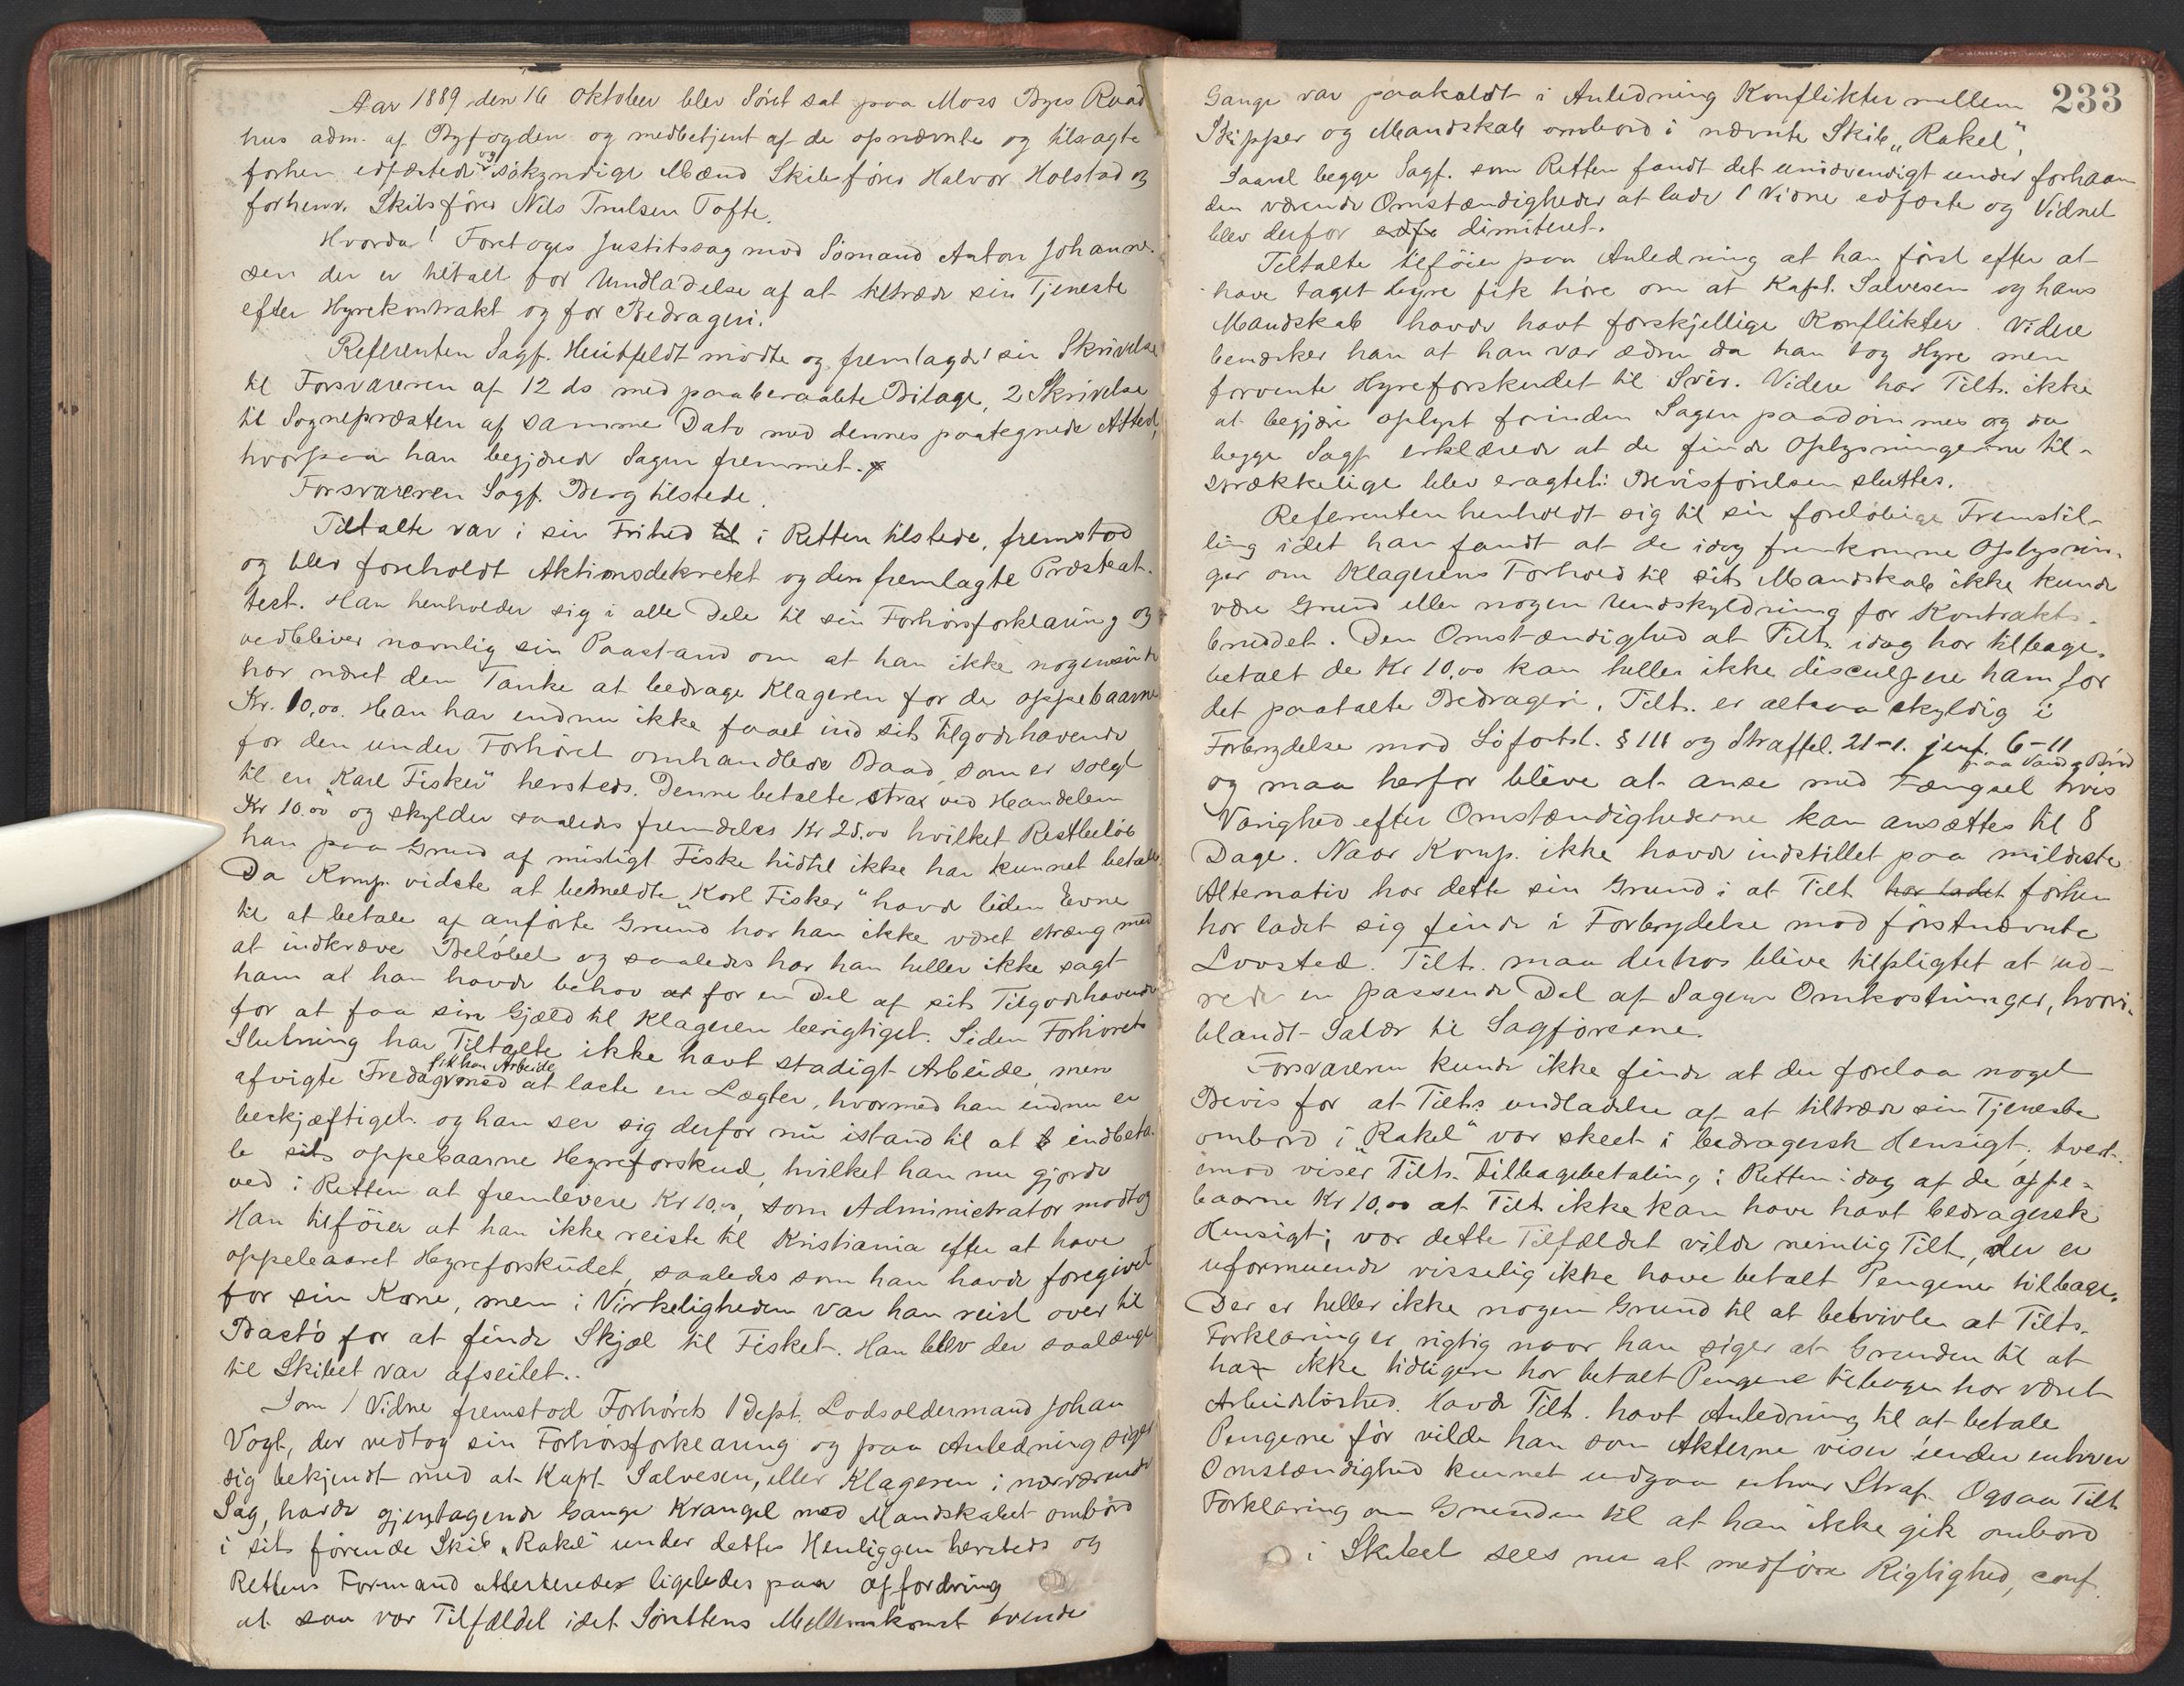 Aar 1889 den 16 Oktober blev Søret sat paa Moss Byes Raad
hus adm. af Byfogden og medbetjent af de opnævnte og tilsagte
forhen edfæstede og søkyndige Mænd Skibsfører Halvor Holstad og
forhenv. Skibsfører Nils Trulsen Tofte.
Hvorda! Foretoges Justitssag mod Sømand Anton Johanne-
sen der er tiltalt for Undladelse af at tiltræde sin Tjeneste
efter Hyrekontrakt og for Bedrageri.
Referenten Sagf. Heitfeldt mødte og fremlagde sin Skrivelse
til Forsvareren af 12 ds med paaberaabte Bilage, 2 Skrivelse
til Sognepræsten af samme Dato med dennes paategnede Attest,
hvorpaa han begjærede Sagen fremmet.
Forsvareren Sagf. Berg tilstede.
Tiltalte var i sin Frihed til i Retten tilstede, fremstod
og blev foreholdt Aktionsdekretet og den fremlagte Præsteat-
test. Han henholder sig i alle Dele til sin Forhørsforklaring og
vedbliver navnlig sin Paastand om at han ikke nogensinde
har næret den Tanke at bedrage Klageren for de oppebaarne
Kr. 10,00. Han har endnu ikke faaet ind sit Tilgodehavende
for den under Forhøret omhandlede Baad, som er solgt
til en "Karl Fisker" hersteds. Denne betalte strax ved Handelen
Kr 10.00 og skylder saaledes fremdeles Kr 25.00 hvilket Restbeløb
han paa Grund af misligt Fiske hidtil ikke har kunnet betale.
Da Komp. vidste at bemeldte "Karl Fisker" havde liden Evne
til at betale af anførte Grund har han ikke været stræng med
at indkræve Beløbet og saaledes har han heller ikke sagt
ham at han havde behov at for en Del af sit Tilgodehavende
for at faa sin Gjæld til Klageren berigtiget. Siden Forhørets
Slutning har Tiltalte ikke havt stadigt Arbeide, men
afvigte Fredag fik han Arbeide med at laste en Lægter, hvormed han endnu er
beskjæftiget og han ser sig derfor nu istand til at indbeta-
le sit oppebaarne Hyreforskud, hvilket han nu gjorde
ved i Retten at fremlevere Kr 10,00, som Administrator modtog
Han tilføier at han ikke reiste til Kristiania efter at have
oppebaaret Hyreforskudet, saaledes som han havde foregivet
for sin Kone, men i Virkeligheden var han reist over til
Bastø for at finde Skjæl til Fisket. Han blev der saalænge
til Skibet var afseilet..
Som 1 Vidne fremstod Forhørets 1 Dept. Lodsoldermand Johan
Vogt, der vedtog sin Forhørsforklaring og paa Anledning siger
sig bekjendt med at Kapt. Salvesen, eller Klageren i nærværende
Sag, havde gjentagende Gange Krangel med Mandskabet ombord
i sit førende Skib "Rakel" under dettes Henliggen hersteds og
Rettens Formand attesterede ligeledes paa Opfordring
at saa var Tilfældet idet Sørettens Mellemkomst tvende
233
Gange var paakaldt i Anledning Konflikter mellem
Skipper og Mandskab ombord i nævnte Skib "Rakel".
Saavel begge Sagf. som Retten fandt det unødvendigt under forhaan
den værende Omstændigheder at lade 1 Vidne edfæste og Vidnet
blev derfor edfæ dimiteret.
Tiltalte tilføier paa Anledning at han først efter at
have taget Hyre fik høre om at Kapt. Salvesen og hans
Mandskab havde havt forskjellige Konflikter. Videre
bemærker han at han var ædru da han tog Hyre men
forvente Hyreforskudet til Svir. Videre har Tilt. ikke
at begjære oplyst forinden Sagen paadømmes og da
begge Sagf. erklærede at de finde Oplysningerne til-
strækkelige blev eragtet: Bevisførelsen sluttes.
Referenten henholdt sig til sin foreløbige Fremstil-
ling idet han fandt at de idag fremkomne Oplysnin-
ger om Klagerens Forhold til sit Mandskab ikke kunde
være Grund eller nogen Undskyldning for Kontrakts-
bruddet. Den Omstændighed at Tilt. idag har tilbage-
betalt de Kr 10,00 kan heller ikke disculpere ham for
det paatalte Bedrageri. Tilt. er altsaa skyldig i
Forbrydelse mod Søfartsl. § 111 og Straffel. 21-1. jevf. 6-11
og maa herfor blive at anse med Fængsel paa Vand & Brød hvis
Varighed efter Omstændighederne kan ansættes til 8
Dage. Naar Komp. ikke havde indstillet paa mildeste
Alternativ har dette sin Grund i at Tilt har ladet forhen
har ladet sig finde i Forbrydelse mod førstnævnte
Lovsted. Tilt. maa derhos blive tilpligtet at ud-
rede en passende Del af Sagens Omkostninger, hvori-
blandt Salær til Sagførerne.
Forsvareren kunde ikke finde at der forelaa noget
Bevis for at Tilts. undladelse af at tiltræde sin Tjeneste
ombord i "Rakel" var skeet i bedragersk Hensigt; tvert-
imod viser Tilts. Tilbagebetaling i Retten idag af de oppe-
baarne Kr 10,00 at Tilt ikke kan have havt bedragersk
Hensigt; var dette Tilfældet vilde nemlig Tilt, der er
uformuende visselig ikke have betalt Pengene tilbage.
Der er heller ikke nogen Grund til at betvivle at Tilts.
Forklaring er rigtig naar han siger at Grunden til at
han ikke tidligere har betalt Pengene tilbage har været
Arbeidsløshed. Havde Tilt. havt Anledning til at betale
Pengene før vilde han som Akterne viser under enhver
Omstændighed kunnet undgaa enhver Straf. Ogsaa Tilt
Forklaring om Grunden til at han ikke gik ombord
i Skibet sees nu at medføre Rigtighed, conf.